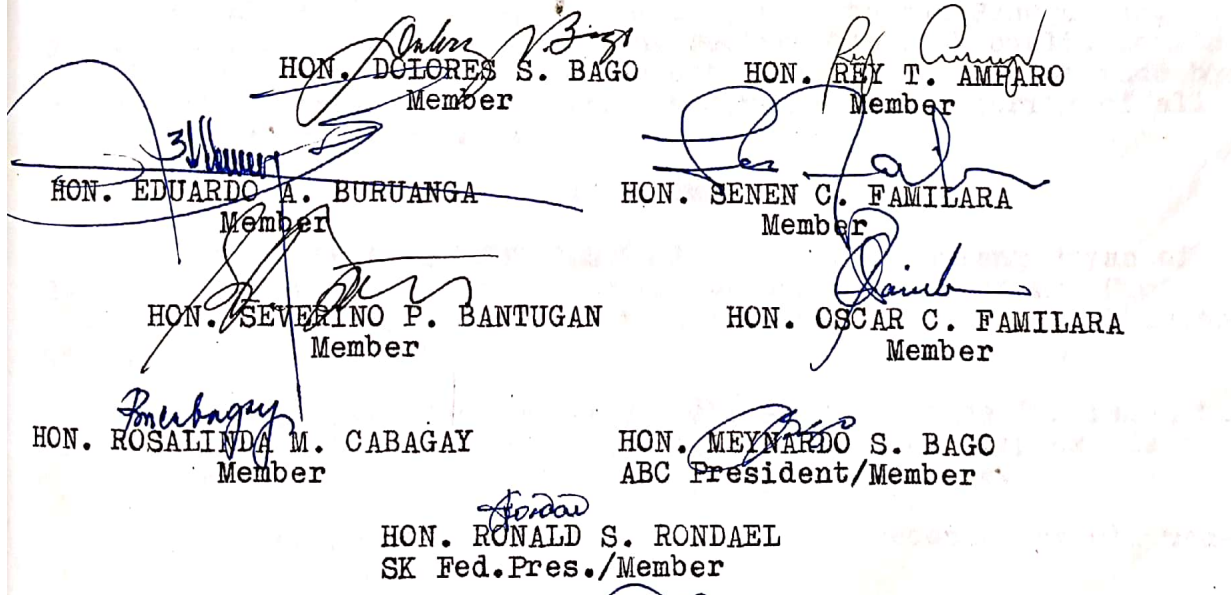 HON. DOLORES S. BAGO
Member
HON. REY T. AMPARO
Member
HON. EDUARDO A. BURUANGA
Member
HON. SENEN C. FAMILARA
Member
HON. SEVERINO P. BANTUGAN
Member
HON. OSCAR C. FAMILARA
Member
HON. ROSALINDA M. CABAGAY
Member
HON. MEYNARDO S. BAGO
ABC President/Member
HON. RONALD S. RONDAEL
SK Fed.Pres./Member